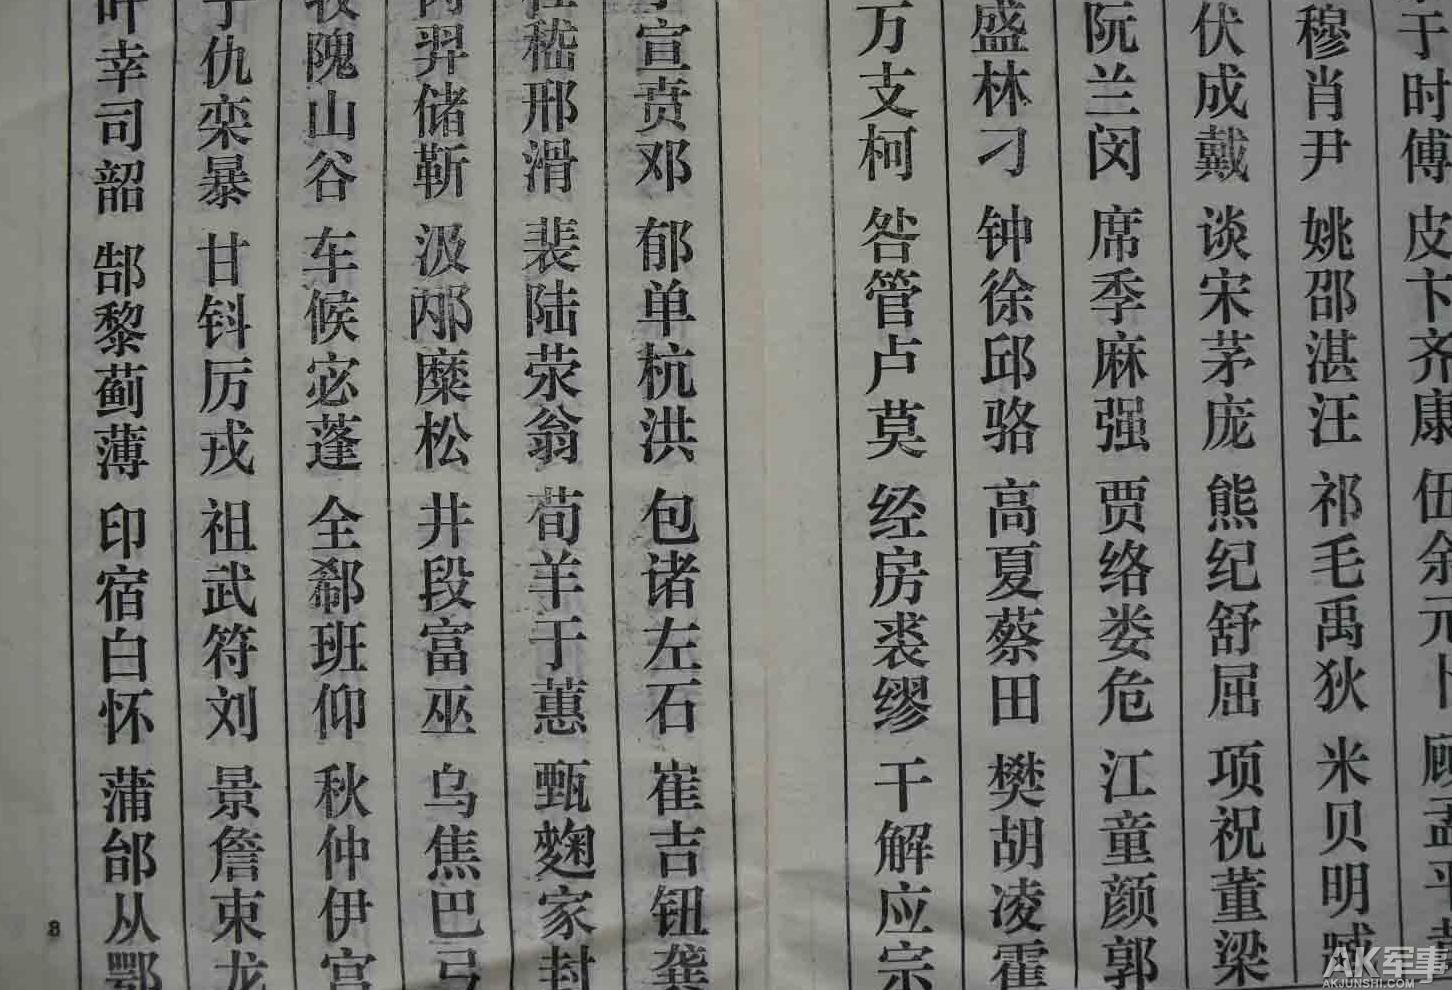 于时傅 皮卞齐康 伍余元卜 顾孟平
穆肖尹 姚邵湛汪 祁毛禹狄 米贝明臧
伏成戴 谈宋茅庞 熊纪舒屈 项祝董梁
阮兰闵 席季麻强 贾络娄危 江童颜郭
盛林刁 钟徐邱骆 高夏蔡田 樊胡凌霍
万支柯 昝管卢莫 经房裘缪 干解应宗
宣贲邓 郁单杭洪 包诸左石 崔吉钮龚
嵇邢滑 裴陆荥翁 荀羊于蕙 甄麹家封
羿储靳 汲邴糜松 井段富巫 乌焦巴弓
牧隗山谷 车候宓蓬 全郗班仰 秋仲伊宫
仇栾暴 甘钭厉戎 祖武符刘 景詹束龙
叶幸司韶 郜黎蓟薄 印宿白怀 蒲邰从鄂
8
AK军事
AKJUNSHI.COM